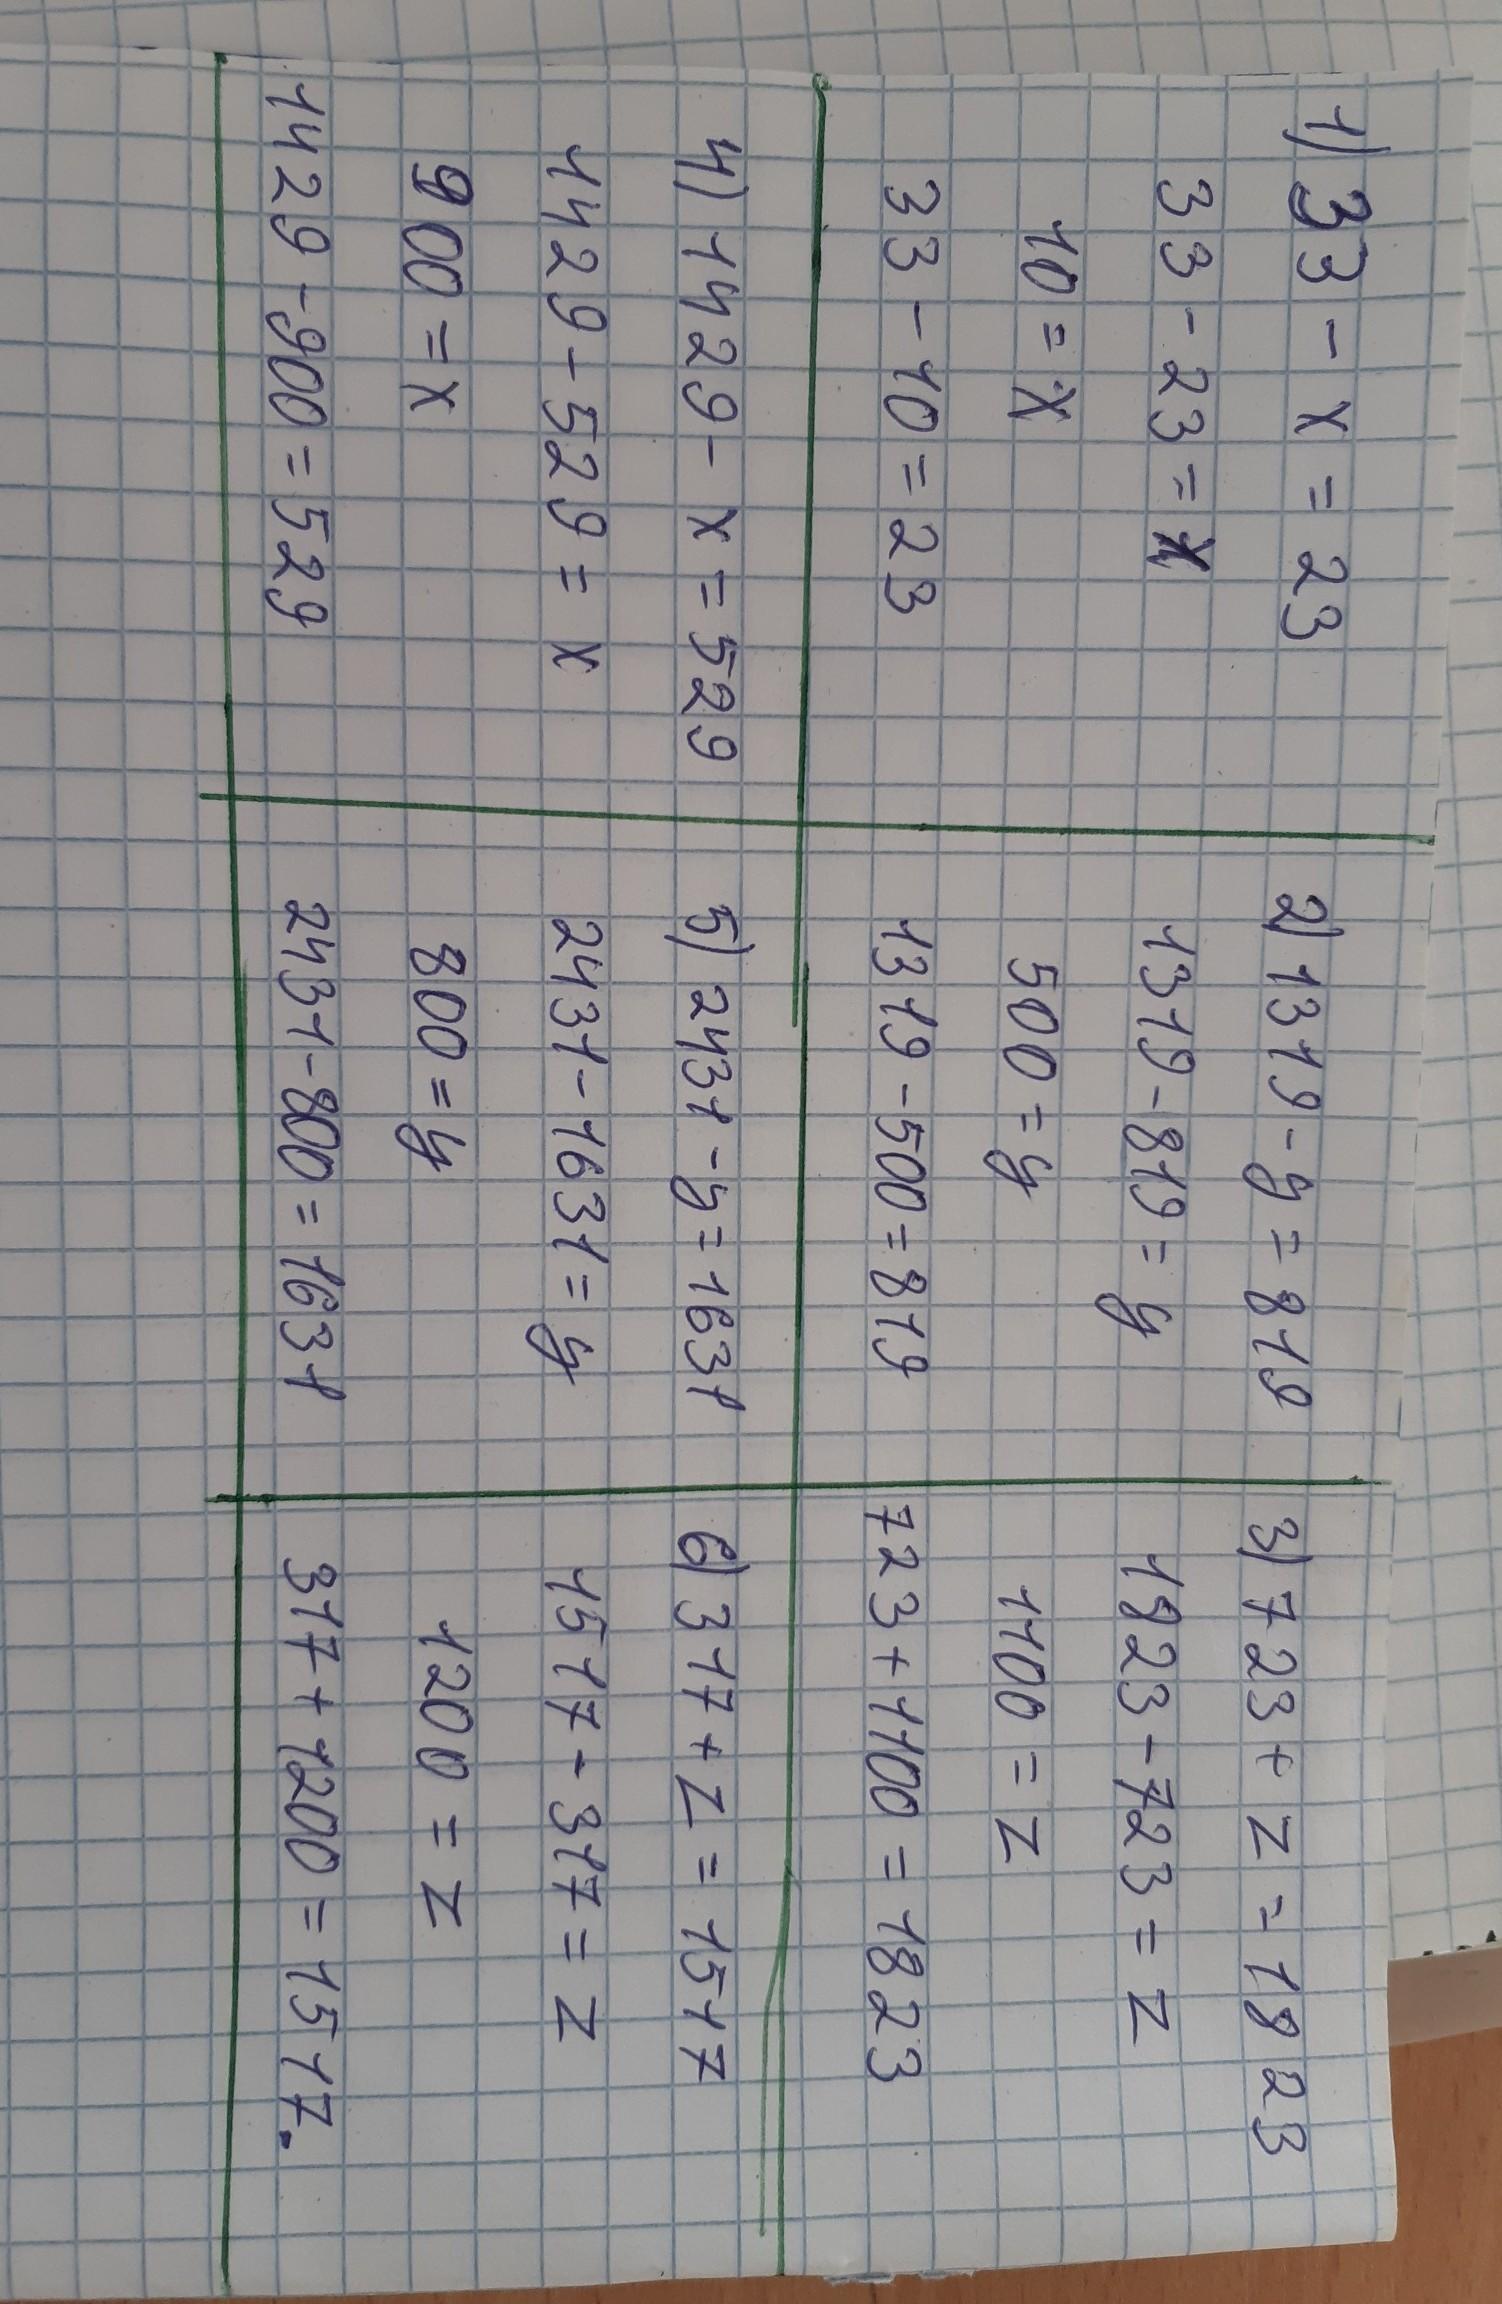 1) 33 - x = 23
33 - 23 = x
10 = x
33 - 10 = 23
2) 1319 - y = 819
1319 - 819 = y
500 = y
1319 - 500 = 819
3) 723 + z = 1823
1823 - 723 = z
1100 = z
723 + 1100 = 1823
4) 1429 - x = 529
1429 - 529 = x
900 = x
1429 - 900 = 529
5) 2431 - y = 1631
2431 - 1631 = y
800 = y
2431 - 800 = 1631
6) 317 + z = 1517
1517 - 317 = z
1200 = z
317 + 1200 = 1517.